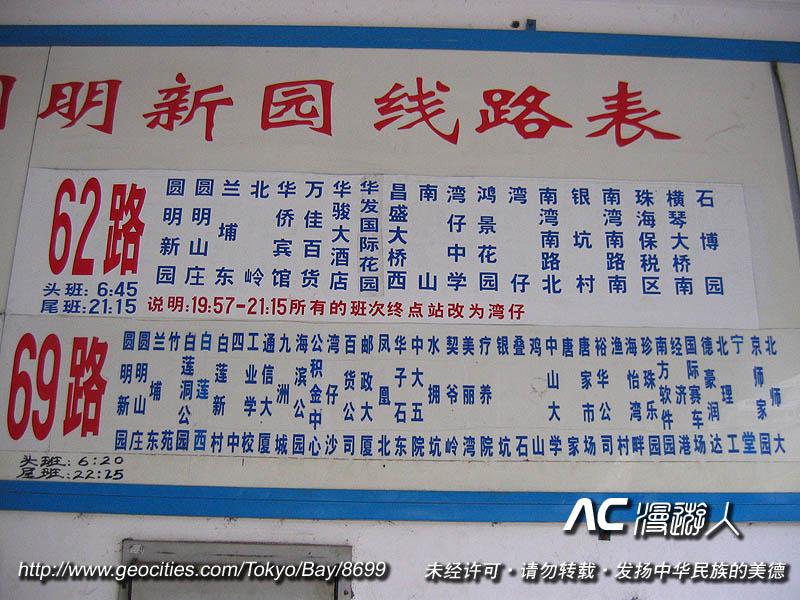 明新园线路表
62路
头班:6:45
尾班:21:15
圆明新园
圆明山庄
兰埔东
北岭
华侨宾馆
万佳百货
华骏大酒店
华发国际花园
昌盛大桥西
南山
湾仔中学
鸿景花园
湾仔
南湾南路北
银坑村
南湾南路南
珠海保税区
横琴大桥南
石博园
说明:19:57-21:15所有的班次终点站改为湾仔
69路
圆明新园
圆明山庄
兰埔东
竹苑
白莲洞公园
白莲西
白莲新村
四中
工业学校
通信大厦
九洲城
海滨公园
公积金中心
湾仔沙
百货公司
邮政大厦
凤凰北
华子石东
中大五院
水拥坑
契爷岭
美丽湾
疗养院
银坑
叠石
鸡山
中山大学
唐家
唐家市场
裕华公司
渔村
海怡湾畔
珍珠乐园
南方软件园
经济港
国际赛车场
德豪润达
北理工
宁堂
京师家园
北师大
头班:6:20
尾班:22:25
AC漫游人
http://www.geocities.com/Tokyo/Bay/8699
未经许可·请勿转载·发扬中华民族的美德